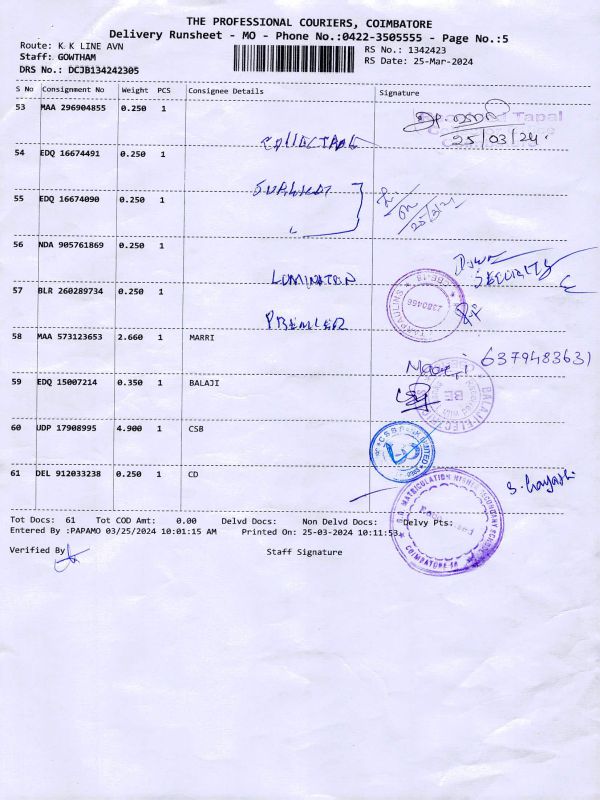 THE PROFESSIONAL COURIERS, COIMBATORE
Delivery Runsheet - MO - Phone No.:0422-3505555 - Page No.:5
Route: K K LINE AVN
RS No.: 1342423
Staff: GOWTHAM
RS Date: 25-Mar-2024
DRS No.: DCJB134242305
S No Consignment No Weight PCS Consignee Details Signature
53 MAA 296904855 0.250 1
Tapal
25/03/24
54 EDQ 16674491 0.250 1
55 EDQ 16674090 0.250 1
56 NDA 905761869 0.250 1
SECURITY
57 BLR 260289734 0.250 1
PREMIER
58 MAA 573123653 2.660 1 MARRI
6379483631
59 EDQ 15007214 0.350 1 BALAJI
60 UDP 17908995 4.900 1 CSB
CSB BANK LIMITED
61 DEL 912033238 0.250 1 CD
MATRICULATION HIGHER SECONDARY
COIMBATORE
Tot Docs: 61 Tot COD Amt: 0.00 Delvd Docs: Non Delvd Docs: Delvy Pts:
Entered By :PAPAMO 03/25/2024 10:01:15 AM Printed On: 25-03-2024 10:11:53
Verified By
Staff Signature